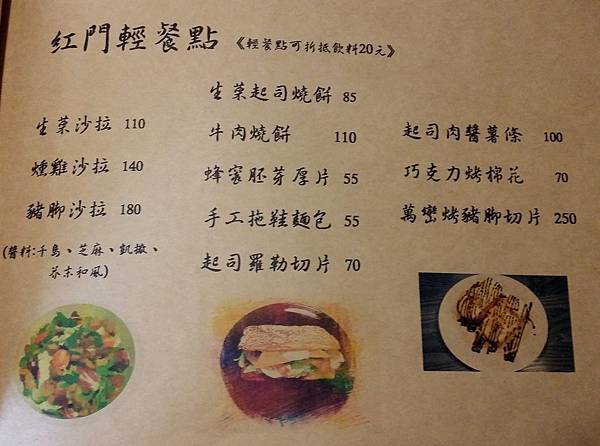 紅門輕餐點 《輕餐點可折抵飲料20元》
生菜沙拉 110
燻雞沙拉 140
豬腳沙拉 180
(醬料:千島、芝麻、凱撒、
芥末和風)
生菜起司燒餅 85
牛肉燒餅 110
蜂蜜胚芽厚片 55
手工拖鞋麵包 55
起司羅勒切片 70
起司肉醬薯條 100
巧克力烤棉花 70
萬巒烤豬腳切片 250